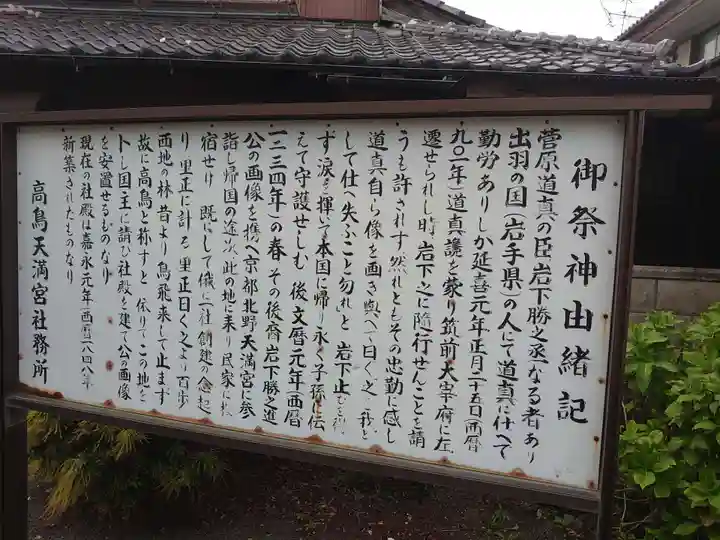 御祭神由緒記
菅原道真の臣、岩下勝之丞なる者あり
出羽の国(岩手県)の人にて道真に仕へて
勤労ありしか延喜元年正月二十五日(西暦
九〇一年)道真讒を蒙り筑前大宰府に左
遷せられし時 岩下之に随行せんことを請
うも許されす 然れともその忠勤に感し
道真自ら像を画き與へて曰く之 我と
して仕へ失ふこと勿れと 岩下止むを得
ず 涙を揮い本国に帰り永く子孫に伝
えて守護せしむ 後文暦元年(西暦
一二三四年)の春 その後裔岩下勝之進
公の画像を携へ京都北野天満宮に参
詣し帰国の途次 此の地に来り民家に
宿せり 既にして俄に一社創建の念起
り 里正に計る 里正曰く之より百歩
西地の林 昔より鳥飛来して止ます
故に高鳥と称すと 依りてこの地を
卜し国主に請ひ社殿を建て公の画像
を安置せるものなり
現在の社殿は嘉永元年(西暦一八四八年
新築されたものなり
高鳥天満宮社務所